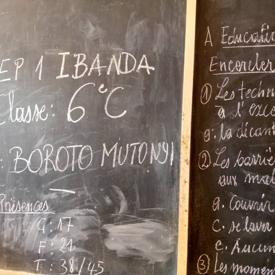 EP 1 IBANDA
Classe: 6e C
: BOROTO MUTONYI
Présences
G: 17
F: 21
T: 38/45
A Educatio
Encercler
① Les techn
à l'exc
a. la dicant
② Les barriè
aux mal
a. Couvrir
c. se laver
e. Aucun
③ Les momen